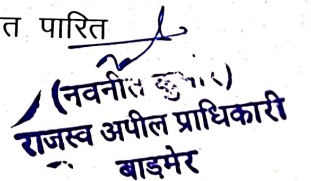 त पारित
(नवनीत कुमार)
राजस्व अपील प्राधिकारी
बाड़मेर